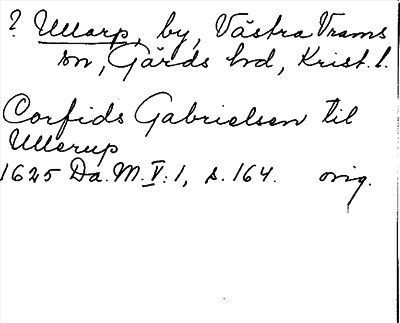 ? Ullarp, by, Västra Vrams
sn, Gärds hd, Krist. l.
Corfids Gabrielsen til
Ullerup
1625 Da. M. V: 1, s. 164. orig.